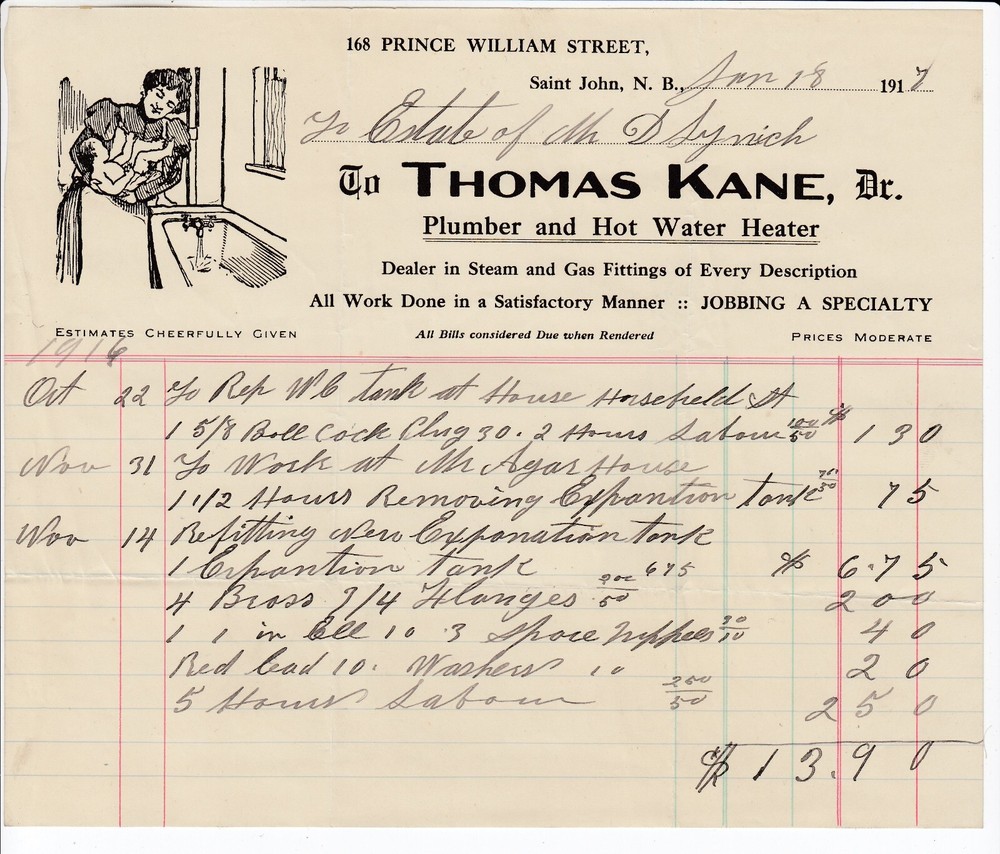 168 PRINCE WILLIAM STREET,
Saint John, N. B., Jan 18 1917
To Estate of Mr D Lynch
To THOMAS KANE, Dr.
Plumber and Hot Water Heater
Dealer in Steam and Gas Fittings of Every Description
All Work Done in a Satisfactory Manner :: JOBBING A SPECIALTY
ESTIMATES CHEERFULLY GIVEN All Bills considered Due when Rendered PRICES MODERATE
1916
Oct 22 To Rep W C tank at House Horsefield St
1 5/8 Ball Cock Plug 30. 2 Hours Labour 100/50 $ 1 30
Nov 31 To Work at Mr Agar House
1 1/2 Hours Removing Expantion tank 75/50 75
Nov 14 Refitting New Expanation tank
1 Expantion tank 675 $ 6.75
4 Brass 3/4 Flanges 200/50 200
1 1 in Ell 10 3 Space Nipples 30/10 40
Red Lead 10. Washers 10 20
5 Hours Labour 250/50 250
$ 13.90